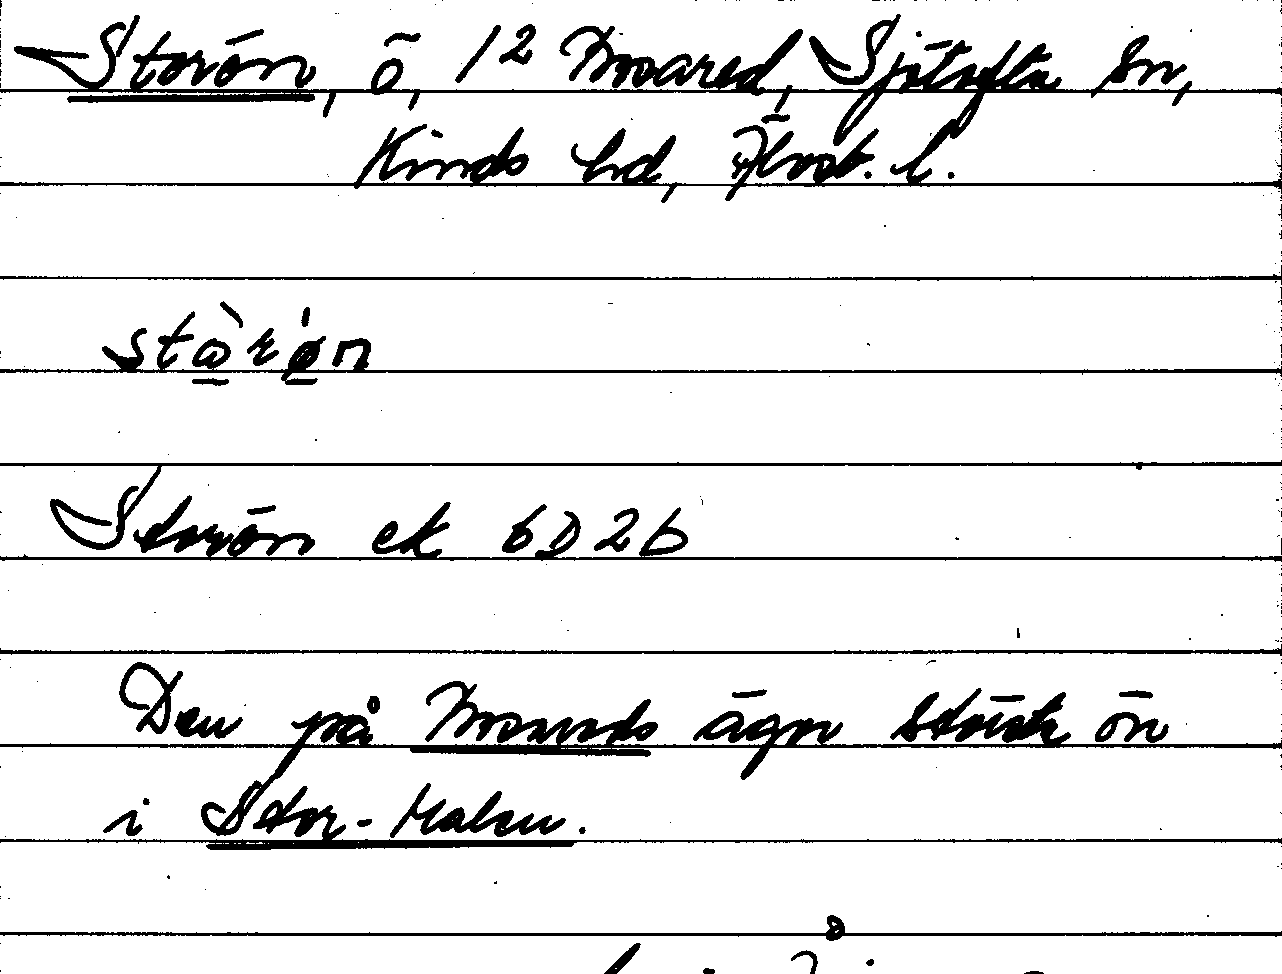 Storön, ö, 1² Mosared, Sjötofta sn,
Kinds hd, Älvsb. l.
stòrøn
Storön ek 6D2b
Den på Mosareds ägor största ön
i Stor-Halsen.